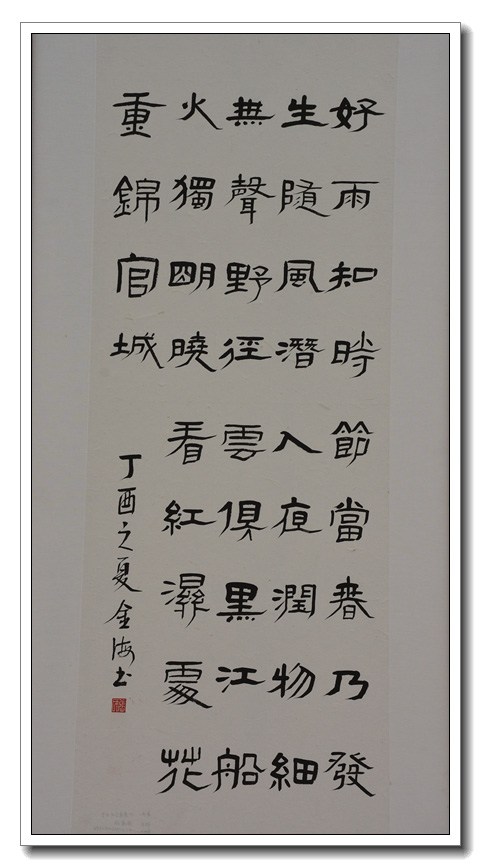 好雨知時節當春乃發
生隨風潛入夜潤物細
無聲野徑雲俱黑江船
火獨明曉看紅濕處花
重錦官城
丁酉之夏金海书